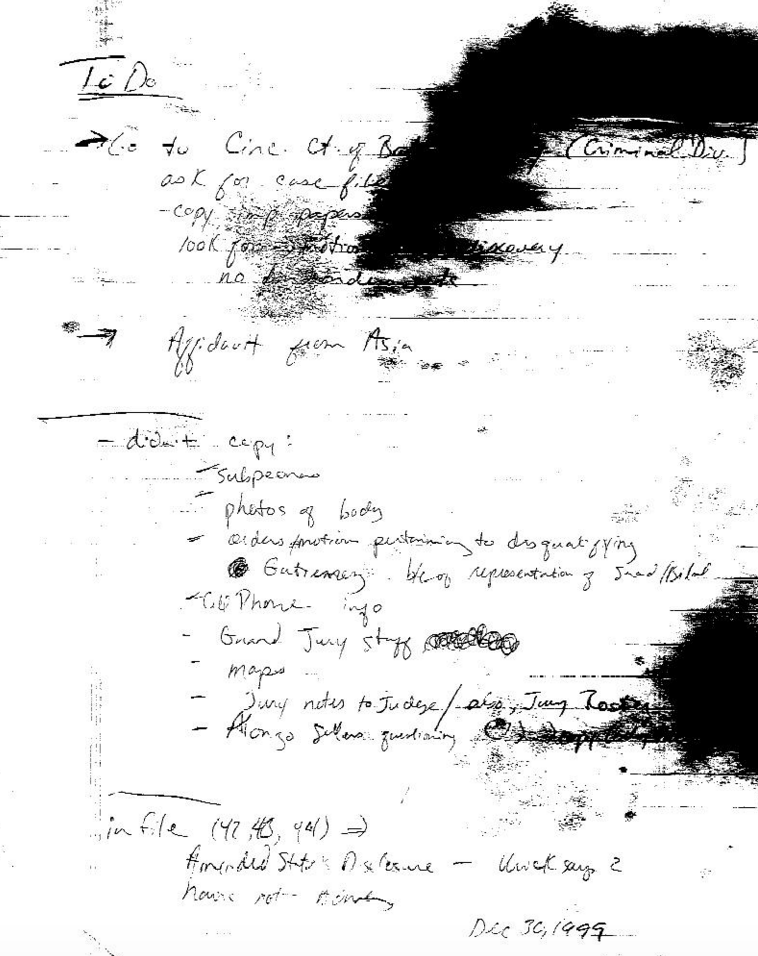 To Do
Go to Circ. Ct. of (Criminal Div.)
ask for case file
- copy imp papers
look for motion discovery
no
Affidavit from Asia
- didn't copy:
- subpoenas
- photos of body
- orders/motion pertaining to disqualifying
Gutierrez b/c of representation of Saad/Bilal
- Cell Phone info
- Grand Jury stuff
- maps
- Jury notes to Judge/ also, Jury
- Alonzo Sellers questioning
in file (42, 43, 441) ⇒
Amended State's Disclosure - Urick says 2
have not
Dec 30, 1999